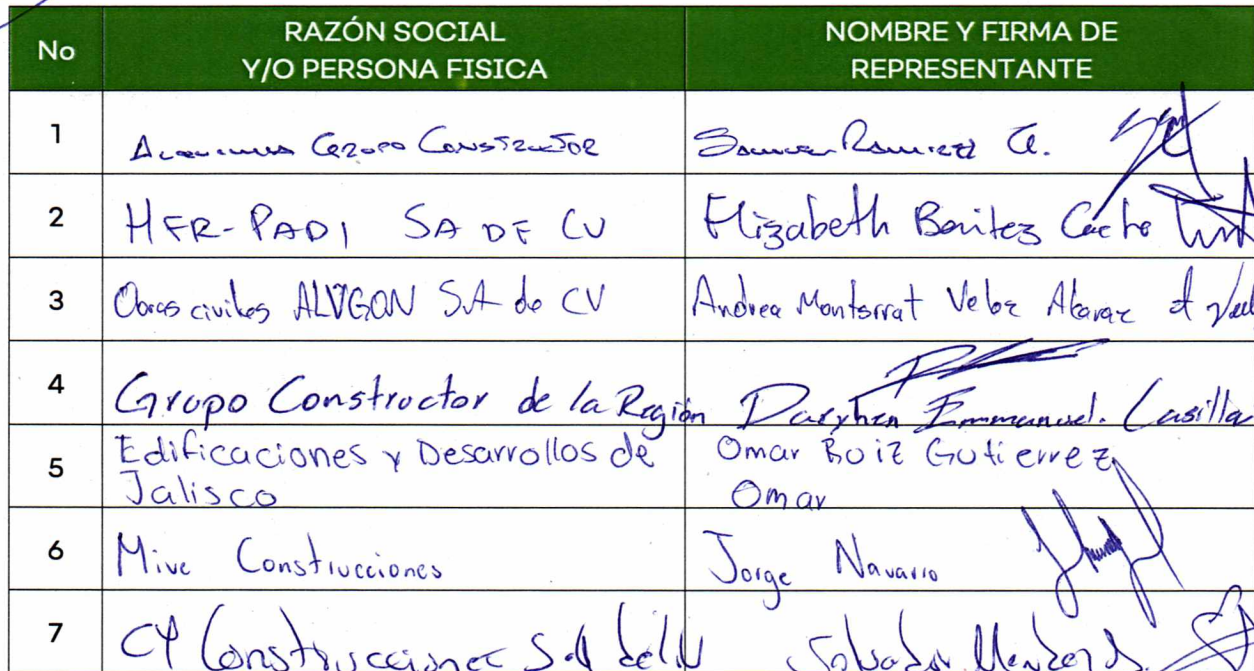 No
RAZÓN SOCIAL
Y/O PERSONA FISICA
NOMBRE Y FIRMA DE
REPRESENTANTE
1
Grupo Constructor
Ramirez G.
2
HER-PADI SA DE CV
Elizabeth Benitez
3
Obras civiles ALVGON S.A de CV
Andrea Montserrat
4
Grupo Constructor de la Región
Emmanuel. Casilla
5
Edificaciones y Desarrollos de
Jalisco
Omar Ruiz Gutierrez
Omar
6
Mive Construcciones
Jorge Navarro
7
CP Construcciones S.A de CV
Salvador